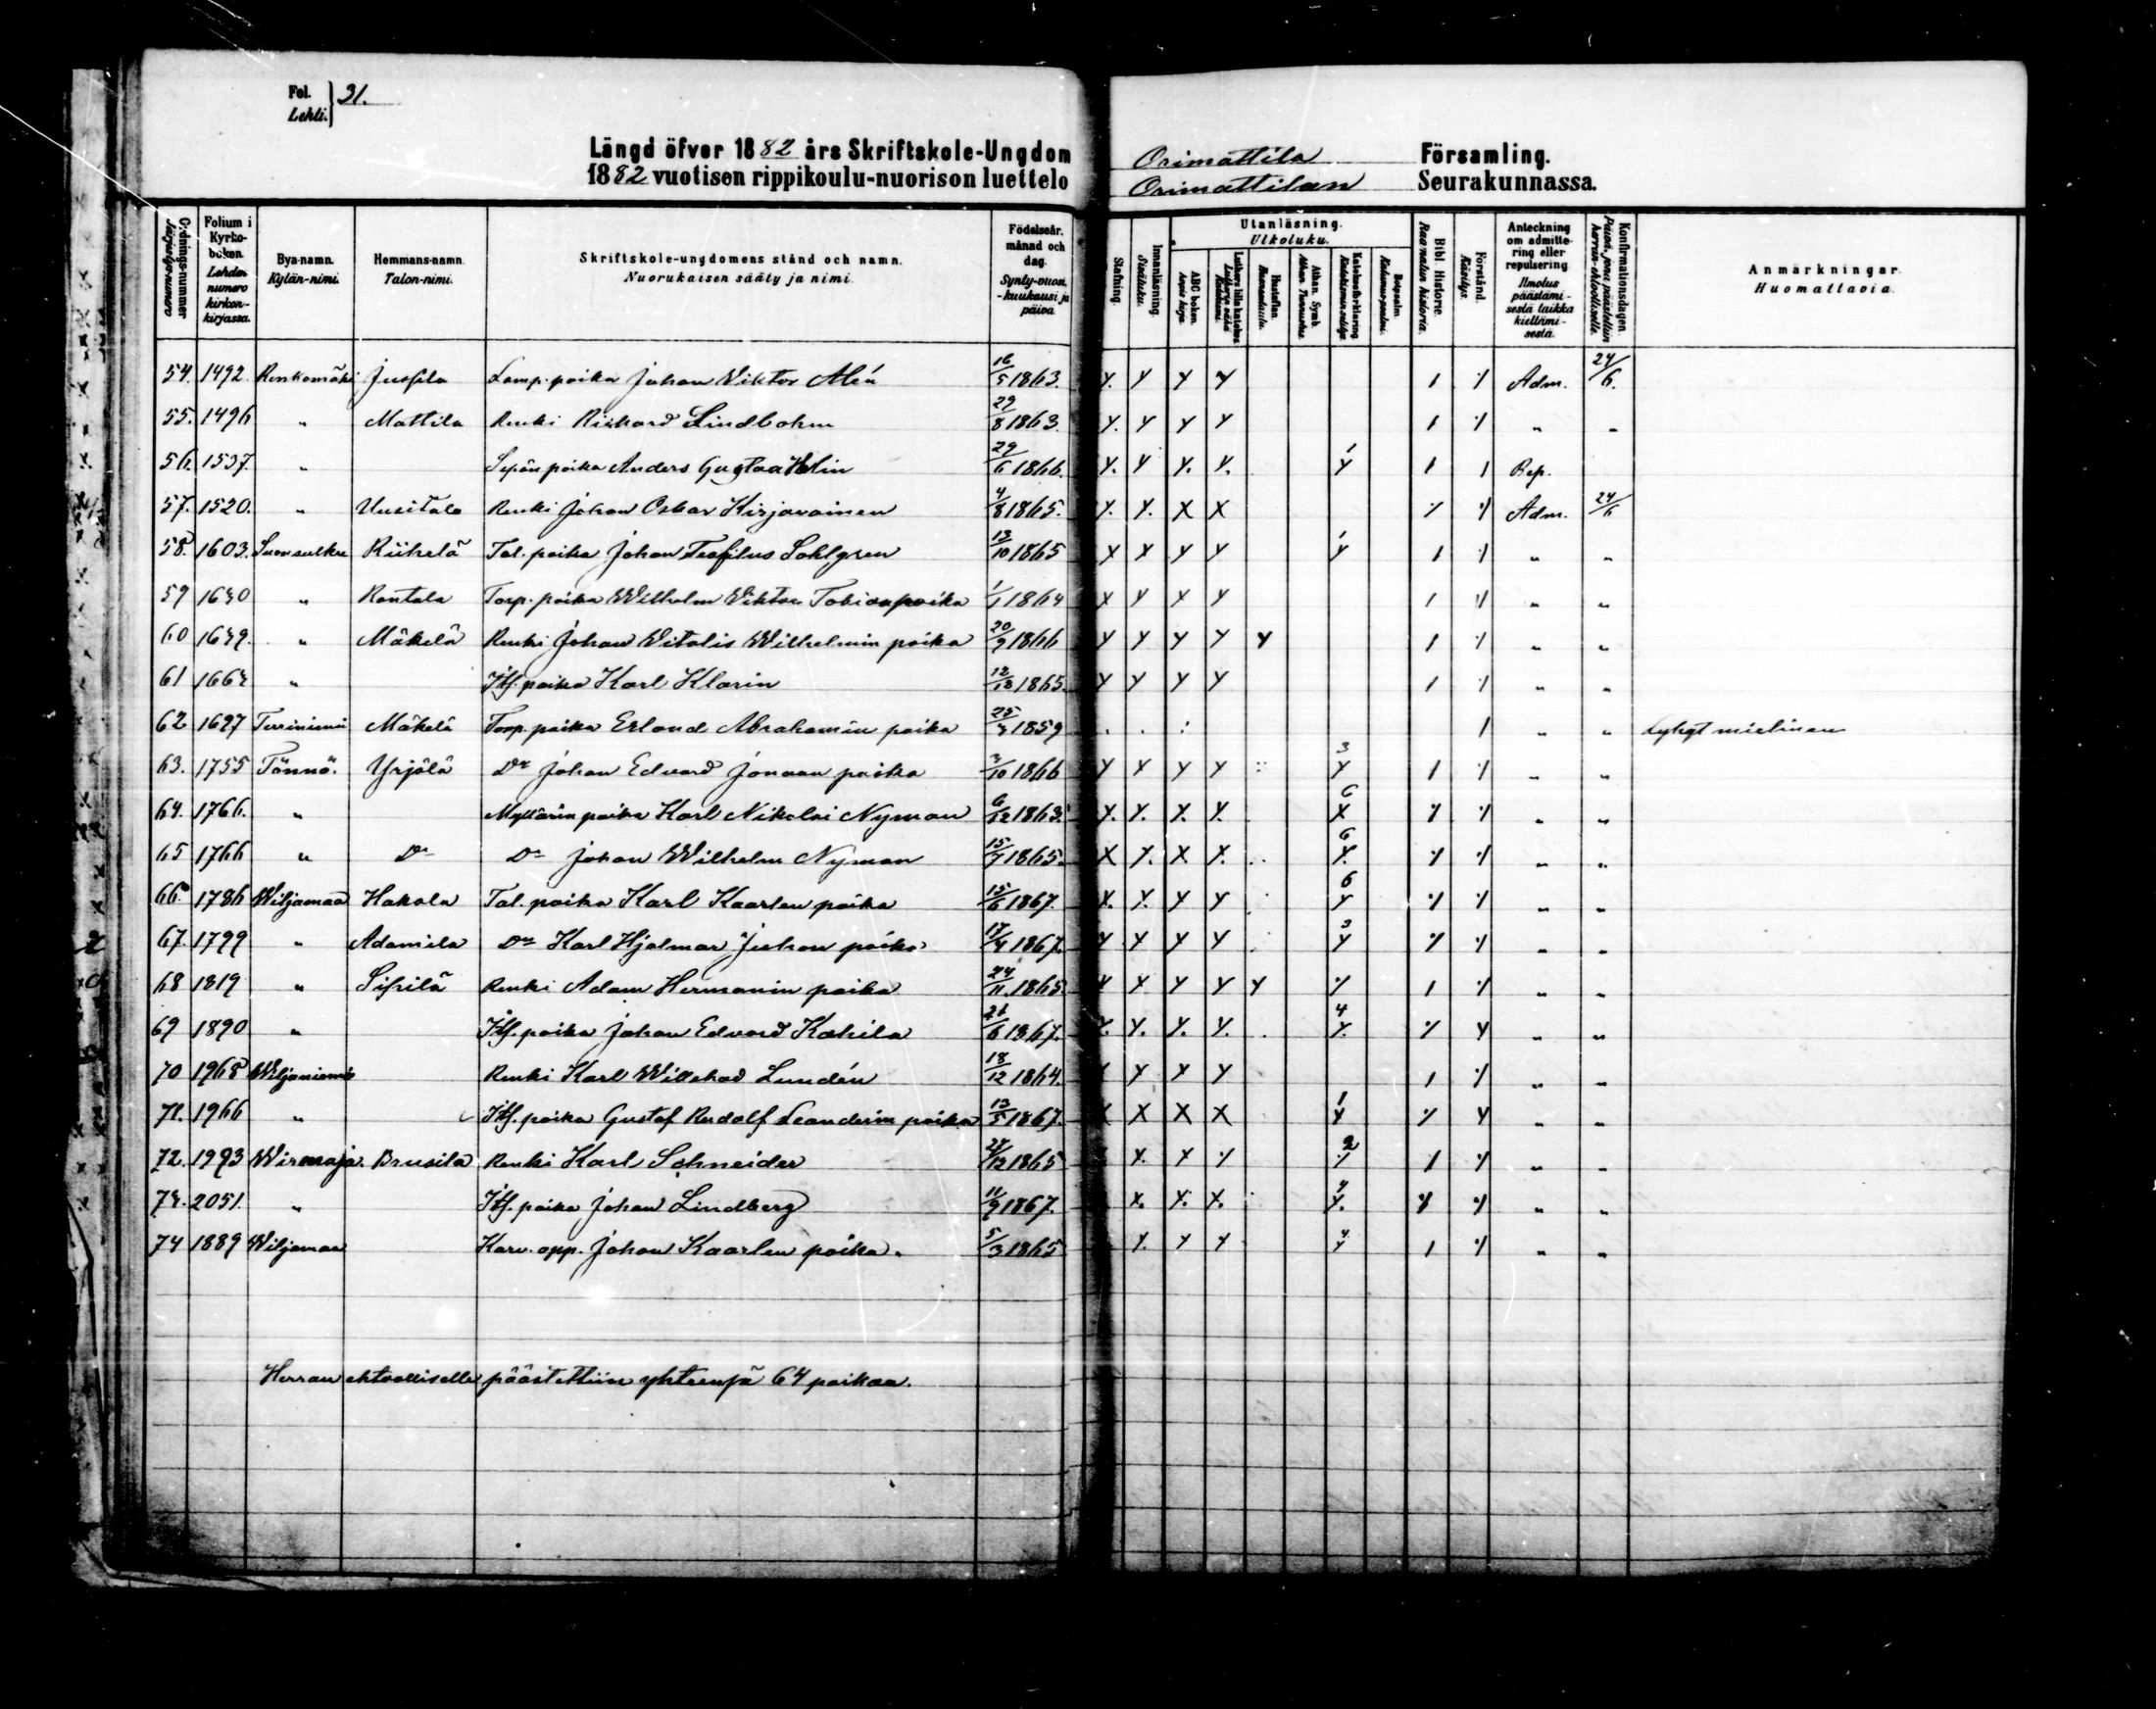 Fol. Lehti. } 31.
Längd öfver 1882 års Skriftskole-Ungdom Orimattila Församling.
1882 vuotisen rippikoulu-nuorison luettelo Orimattilan Seurakunnassa.
Ordnings-nummer Järjestys-numero
Folium i Kyrko-boken. Lehden numero kirkon-kirjassa.
Bya-namn. Kylän-nimi.
Hemmans-namn. Talon-nimi.
Skriftskole-ungdomens stånd och namn. Nuorukaisen sääty ja nimi.
Födelseår, månad och dag. Synty-vuosi, -kuukausi ja päivä
Stafning.
Innanläsning. Sisäluku.
Utanläsning. Ulkoluku.
ABC boken. Aapis kirja.
Luthers lilla katekes
Hustaflan
Athan. Symb.
Katekesförklaring
Botpsalm.
Bibl. Historie. Raamatun historia.
Förstånd. Käsitys.
Anteckning om admittering eller repulsering Ilmotus päästämisestä taikka kieltämisestä.
Konfirmationsdagen. Päivä, jona päästettiin herran-ehtoolliselle.
Anmärkningar. Huomattavia.
54. 1492 Renkomäki Jussila Lamp. poika Johan Viktor Alén 16/5 1863. Y. Y Y Y / ./ Adm. 24/6.
55. 1496 " Mattila Renki Rickard Lindbohm 29/8 1863. Y. Y Y Y / ./ " "
56. 1537. " Sepän poika Anders Gustaa Helin 29/6 1866. Y. Y Y. Y. Y / / Rep.
57. 1520. " Uusitalo Renki Johan Oskar Kirjavainen 4/8 1865. Y. Y. X X ./. ./ Adm. 24/6
58. 1603. Suonsulku Riihelä Tal. poika Johan Teofilus Sohlgren 13/10 1865 X X Y Y Y / ./ " "
59 1630 " Rantala Torp. poika Wilhelm Viktor Tobiaspoika 1/1 1864 X Y Y Y / ./ " "
60 1639. " Mäkelä Renki Johan Vitalis Wilhelmin poika 20/9 1866 Y Y Y Y Y / ./ " "
61 1663 " Itf. poika Karl Klarin 1865. Y Y Y Y / ./ " "
62 1697 Terriniemi Mäkelä Torp. poika Erland Abrahamin poika 1859 . . : / " " Lyhyt mielinen
63. 1755 Tönnö. Yrjölä Do Johan Edvard Jonaan poika 1866 Y Y Y Y 3 Y / ./ " "
64. 1766. " Myllärin poika Karl Nikolai Nyman 6/12 1863. Y. Y. X. Y. 6 X ./. ./. " "
65 1766 " Do Do Johan Wilhelm Nyman 15/7 1865. X Y. X X. 6 Y. ./. ./. " "
66. 1786 Wiljamaa Hakola Tal. poika Karl Kaarlen poika 15/6 1867. X. Y. Y Y 6 Y ./. ./. " "
67. 1799 " Adamila Do Karl Hjalmar Juhan poika 17/4 1867. Y Y Y Y 3 Y ./. ./ " "
68 1819 " Sipilä Renki Adam Hermanin poika 24/11 1865. Y Y Y Y Y ./. / ./. " "
69 1890 " Itf. poika Johan Edvard Kahila 26/6 1867. Y. Y. Y. Y. 4 Y. ./. Y " "
70 1968 Wiljaniemi Renki Karl Willehad Lundén 18/12 1864. Y Y Y / ./. " "
71. 1966 " Itf. poika Gustaf Rudolf Leanderin poika 13/5 1867. X X X 1 Y ./. Y " "
72. 1993 Wirenoja. Brusila Renki Karl Schneider 1865 X. Y ./. 2 ./. / ./ " "
73. 2051. " Itf. poika Johan Lindberg 11/9 1867. X. Y. X. 4 Y. ./. ./. " "
74 1889 Wiljamaa Karv. opp. Johan Kaarlen poika. 5/3 1865 Y. Y Y 4 Y / ./. " "
Herran ehtoolliselle päästettiin yhteensä 64 poikaa.